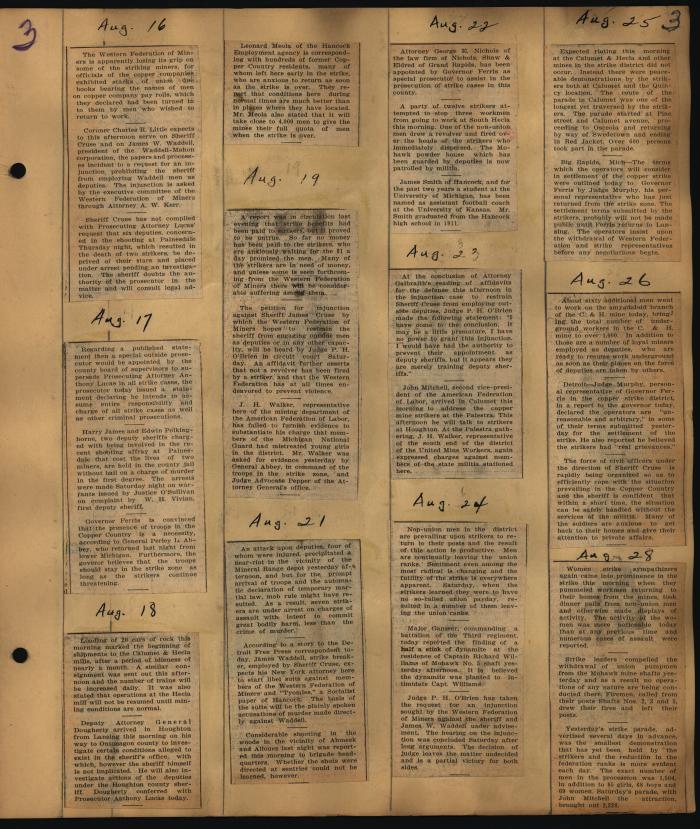 3
Aug. 16
The Western Federation of Min-
ers is apparently losing its grip on
some of the striking miners, for
officials of the copper companies
exhibited stacks of union dues
books bearing the names of men
on copper company pay rolls, which
they declared had been turned in
to them by men who wished to
return to work.
Coroner Charles H. Little expects
to this afternoon serve on Sheriff
Cruse and on James W. Waddell,
president of the Waddell-Mahon
corporation, the papers and process-
es incident to a request for an in-
junction, prohibiting the sheriff
from employing Waddell men as
deputies. The injunction is asked
by the executive committee of the
Western Federation of Miners
through Attorney A. W. Kerr.
Sheriff Cruse has not complied
with Prosecuting Attorney Lucas'
request that six deputies, concern-
ed in the shooting at Painesdale
Thursday night, which resulted in
the death of two strikers, be de-
prived of their stars and placed
under arrest pending an investiga-
tion. The sheriff doubts the au-
thority of the prosecutor in the
matter and will consult legal ad-
vice.
Aug. 17
Regarding a published state-
ment then a special outside prose-
cutor would be appointed by the
county board of supervisors to su-
persede Prosecuting Attorney An-
thony Lucas in all strike cases, the
prosecutor today issued a stat-
ment declaring he intends to as-
sume entire responsibility and
charge of all strike cases as well
as other criminal prosecutions.
Harry James and Edwin Polking-
horne, two deputy sheriffs charg-
ed with being involved in the re-
cent shooting affray at Paines-
dale that cost the lives of two
miners, are held in the county jail
without bail on a charge of murder
in the first degree. The arrests
were made Saturday night on war-
rants issued by Justice O'Sullivan
on complaint by W. H. Vivian,
first deputy sheriff.
Governor Ferris is convinced
that the presence of troops in the
Copper Country is a necessity,
according to General Perley L. Ab-
bey, who returned last night from
lower Michigan. Furthermore, the
govenor believes that the troops
should stay in the strike zone as
long as the strikers continue
threatening.
Aug. 18
Loading of 20 cars of rock this
morning marked the beginning of
shipments to the Calumet & Hecla
mills, after a period of idleness of
nearly a month. A similar con-
signment was sent out this after-
noon and the number of trains will
be increased daily. It was also
stated that operations at the Hecla
mill will not be resumed until min-
ing conditions are normal.
Deputy Attorney General
Dougherty arrived in Houghton
from Lansing this morning on his
way to Ontonagon county to inves-
tigate certain conditions alleged to
exist in the sheriff's office, with
which, however the sheriff himself
is not implicated. He will also in-
vestigate actions of the deputies
under the Houghton county sher-
iff. Dougherty conferred with
Prosecutor Anthony Lucas today.
Leonard Meola of the Hancock
Employment agency is correspond-
ing with hundreds of former Cop-
per Country residents, many of
whom left here early in the strike,
who are anxious to return as soon
as the strike is over. They re-
port that conditions here during
normal times are much better than
in places where they have located.
Mr. Meola also stated that it will
take close to 4,000 men to give the
mines their full quota of men
when the strike is over.
Aug. 19
A report was in circulation last
evening that strike benefits had
been paid to strikers, but it proved
to be untrue. So far no money
has been paid to the strikers, who
are anxiously waiting for the $1 a
day promised the men. Many of
the strikers are in need of money,
and unless some is forthcom-
ing from the Western Federation
of Miners there will be consider-
able suffering among them.
The petition for injunction
against Sheriff James Cruse by
which the Western Federation of
Miners hopes to restrain the
sheriff from engaging outside men
as deputies or in any other capac-
ity, will be heard by Judge P. H.
O'Brien in circuit court Satur-
day. An affidavit further asserts
that not a revolver has been fired
by a striker, and that the Western
Federation has at all times en-
deavored to prevent violence.
J. H. Walker, representative
here of the mining department of
the American Federation of Labor,
has failed to furnish evidence to
substantiate his charge that mem-
bers of the Michigan National
Guard had mistreated young girls
in the district. Mr. Walker was
asked for evidence yesterday by
General Abbey, in command of the
troops in the strike zone, and
Judge Advocate Pepper of the At-
torney General's office.
Aug. 21
An attack upon deputies, four of
whom were injured, precipitated a
near-riot in the vicinity of the
Mineral Range depot yesterday af-
ternoon, and but for the prompt
arrival of troops and the automat-
ic declaration of temporary mar-
tial law, mob rule might have re-
sulted. As a result, seven strik-
ers are under arrest on charges of
assault with intent to commit
great bodily harm, less than the
crime of murder.
According to a story to the De-
troit Free Press correspondent, to-
day, James Waddell, strike break-
er, employed by Sheriff Cruse, ex-
pects his New York attorney here
to start libel suits against mem-
bers of the Western Federation of
Miners and "Tyomies," a Socialist
paper of Hancock. The basis of
the suits will be the plainly spoken
accusations of murder made direct-
ly against Waddell.
Considerable shooting in the
woods in the vicinity of Ahmeek
and Allouez last night was report-
ed this morning to brigade head-
quarters. Whether the shots were
directed at sentries could not be
learned, however.
Aug. 22
Attorney George E. Nichols of
the law firm of Nichols, Shaw &
Eldred of Grand Rapids, has been
appointed by Governor Ferris as
special prosecutor to assist in the
prosecution of strike cases in this
county.
A party of twelve strikers at-
tempted to stop three workmen
from going to work at South Hecla
this morning. One of the non-union
men drew a revolver and fired ov-
er the heads of the strikers who
immediately dispersed. The Mo-
hawk powder house which has
been guarded by deputies is now
patrolled by militia.
James Smith of Hancock, and for
the past two years a student at the
University of Michigan, has been
named as assistant football coach
at the University of Kansas. Mr.
Smith graduated from the Hancock
high school in 1911.
Aug. 23
At the conclusion of Attorney
Galbraith's reading of affidavits
for the defense this afternoon in
the injunction case to restrain
Sheriff Cruse from employing out-
side deputies, Judge P. H. O'Brien
made the following statement: "I
have come to the conclusion, it
may be a little premature, I have
no power to grant this injunction.
I would have had the authority to
prevent their appointment as
deputy sheriffs, but it appears they
are merely training deputy sher-
iffs."
John Mitchell, second vice-presi-
dent of the American Federation
of Labor, arrived in Calumet this
morning to address the copper
mine strikers at the Palestra. This
afternoon he will talk to strikers
at Houghton. At the Palestra gath-
ering, J. H. Walker, representative
of the south end of the district
of the United Mine Workers, again
expressed charges against mem-
bers of the state militia stationed
here.
Aug. 24
Non-union men in the district
are prevailing upon strikers to re-
turn to their posts and the result
of this action is productive. Men
are continually leaving the union
ranks. Sentiment even among the
most radical is changing and the
futility of the strike is everywhere
apparent. Saturday, when the
strikers learned they were to have
no so-called union payday, re-
sulted in a number of them leav-
ing the union ranks.
Major Ganser, commanding a
battalion of the Third regiment,
today reported the finding of a
half a stick of dynamite at the
residence of Captain Richard Wil-
liams of Mohawk No. 5 shaft yes-
terday afternoon. It is believed
the dynamite was planted to in-
timidate Capt. Williams.
Judge P. H. O'Brien has taken
the request for an injunction
sought by the Western Federation
of Miners against the sheriff and
James W. Waddell under advise-
ment. The hearing on the injunc-
tion was concluded Saturday after
long arguments. The decision of
Judge leaves the matter undecided
and is a partial victory for both
sides.
Aug. 25
3
Expected rioting this morning
at the Calumet & Hecla and other
mines in the strike district did not
occur. Instead there were peace-
able demonstrations by the strik-
ers both at Calumet and the Quin-
cy location. The route of the
parade in Calumet was one of the
longest yet traversed by the strik-
ers. The parade started at Pine
street and Calumet avenue, pro-
ceeding to Osceola and returning
by way of Swedetown and ending
in Red Jacket. Over 600 persons
took part in the parade.
Big Rapids, Mich—The terms
which the operators will consider
in settlement of the copper strike
were outlined today to Governor
Ferris by Judge Murphy, his per-
sonal representative who has just
returned from the strike zone. The
settlement terms submitted by the
strikers, probably will not be made
public until Ferris returns to Lans-
ing. The operators insist upon
the withdrawal of Western Feder-
ation and strike representatives
before any negotiations begin.
Aug. 26
About sixty additional men went
to work on the amygdaloid branch
of the C. & H. mine today, bring-
ing the total number of under-
ground workers in the C. & H.
mine to over 1,000. In addition to
those are a number of loyal miners
employed as deputies, who are
ready to resume work underground
as soon as their places on the force
of deputies are taken by others.
Detroit—Judge Murphy, person-
al representative of Governor Fer-
ris in the copper strike district,
in a report to the governor today,
declared the operators are "un-
reasonable and arbitrary," in some
of their terms submitted yester-
day for the settlement of the
strike. He also reported he believed
the strikers had "real grievances."
The force of civil officers under
the direction of Sheriff Cruse is
rapidly being organized so as to
efficiently cope with the situation
prevailing in the Copper Country
and the sheriff is confident that
within a short time, the situation
can be safely handled without the
services of the militia. Many of
the soldiers are anxious to get
back to their homes and give their
attention to private affairs.
Aug. 28
Women strike sympathizers
again came into prominence in the
strike this morning when they
pummeled workmen returning to
their homes from the mines, took
dinner pails from non-union men
and otherwise made displays of
activity. The activity of the wo-
men was more noticeable today
than at any previous time and
numerous cases of assault were
reported.
Strike leaders compelled the
withdrawal of union pumpmen
from the Mohawk mine shafts yes-
terday and as a result no opera-
tions of any nature are being con-
ducted there. Firemen, called from
their posts Shafts Nos. 2, 3 and 5,
drew their fires and left their
posts.
Yesterday's strike parade, ad-
vertised several days in advance,
was the smallest demonstration
that has yet been held by the
strikers and the reduction in the
federation ranks is more evident
each day. The exact number of
men in the procession was 1,504,
in addition to 85 girls, 68 boys and
69 women. Saturday's parade, with
John Mitchell the attraction,
brought out 2,228.